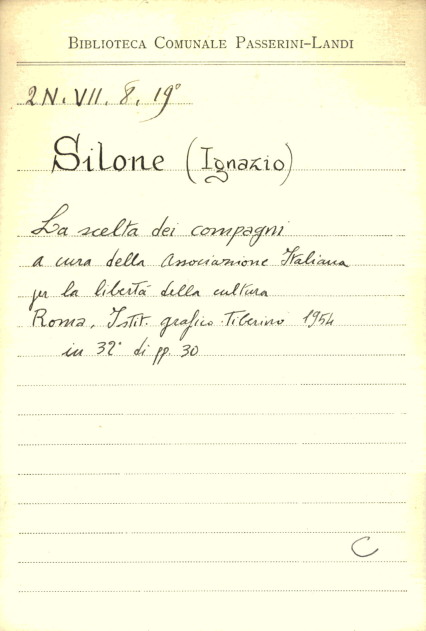 BIBLIOTECA COMUNALE PASSERINI-LANDI
2N. VII. 8. 19°
Silone (Ignazio)
La scelta dei compagni
a cura della Associazione Italiana
per la libertà della cultura
Roma, Istit. grafico Tiberino 1954
in 32° di pp. 30
C